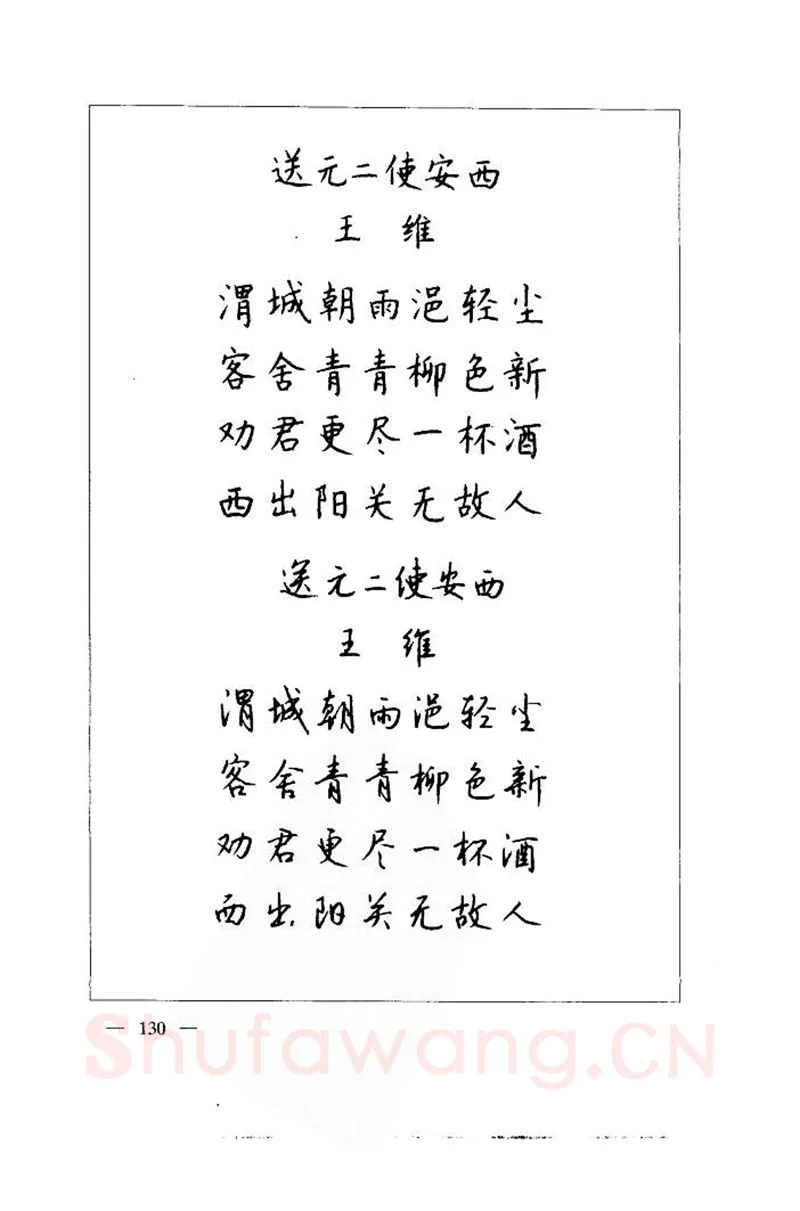 送元二使安西
王 维
渭城朝雨浥轻尘
客舍青青柳色新
劝君更尽一杯酒
西出阳关无故人
送元二使安西
王 维
渭城朝雨浥轻尘
客舍青青柳色新
劝君更尽一杯酒
西出阳关无故人
— 130 —
Shufawang.CN